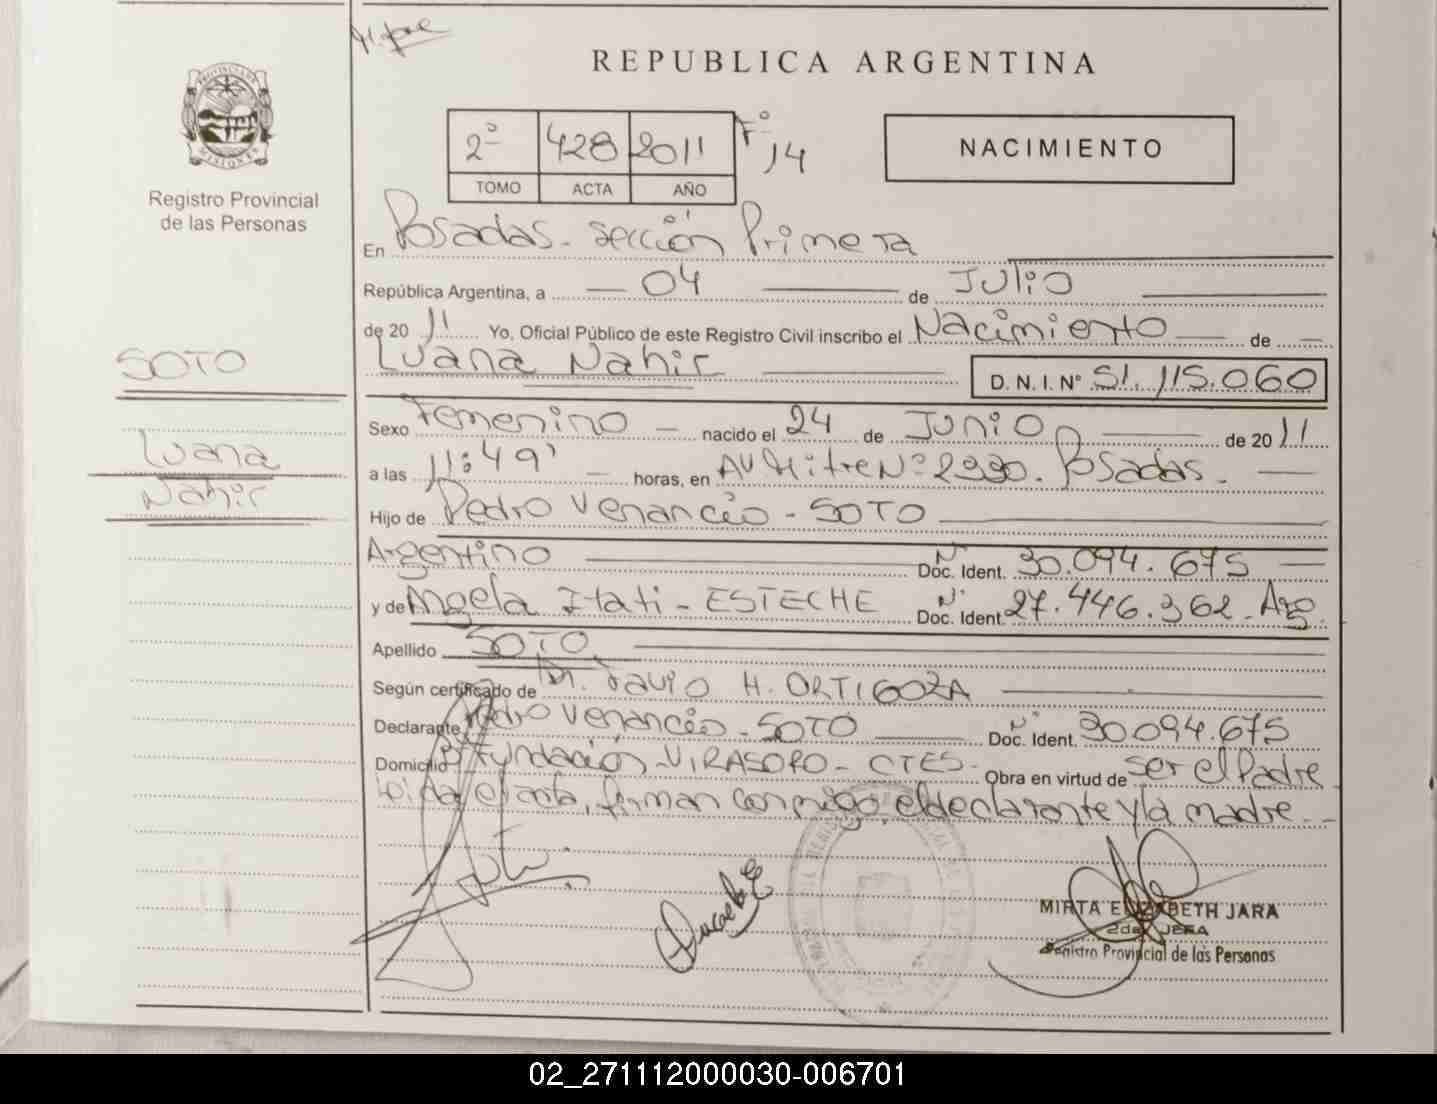 REPUBLICA ARGENTINA
PROVINCIA DE
MISIONES
Registro Provincial
de las Personas
2º 428 2011 Fº 14
TOMO ACTA AÑO
NACIMIENTO
En Posadas - sección Primera
República Argentina, a 04 de Julio
de 2011 Yo, Oficial Público de este Registro Civil inscribo el Nacimiento de
Luana Nahir D.N.I. Nº 51.115.060
SOTO
Luana
Nahir
Sexo Femenino nacido el 24 de Junio de 2011
a las 11:49' horas, en AV Mitre Nº 2330. Posadas.
Hijo de Pedro Venancio - SOTO
Argentino Nº Doc. Ident. 30.094.675
y de Angela Itati - ESTECHE Nº Doc. Ident. 27.446.362 - Arg.
Apellido SOTO
Según certificado de Dr. H. ORTIGOZA
Declarante Pedro Venancio - SOTO Nº Doc. Ident. 30094.675
Domicilio Fundación - VIRASORO - CTES - Obra en virtud de ser el Padre
Leída el acta, firman conmigo, el declarante y la madre.
MIRTA ELIZABETH JARA
2da. JEFA
Registro Provincial de las Personas
02_271112000030-006701